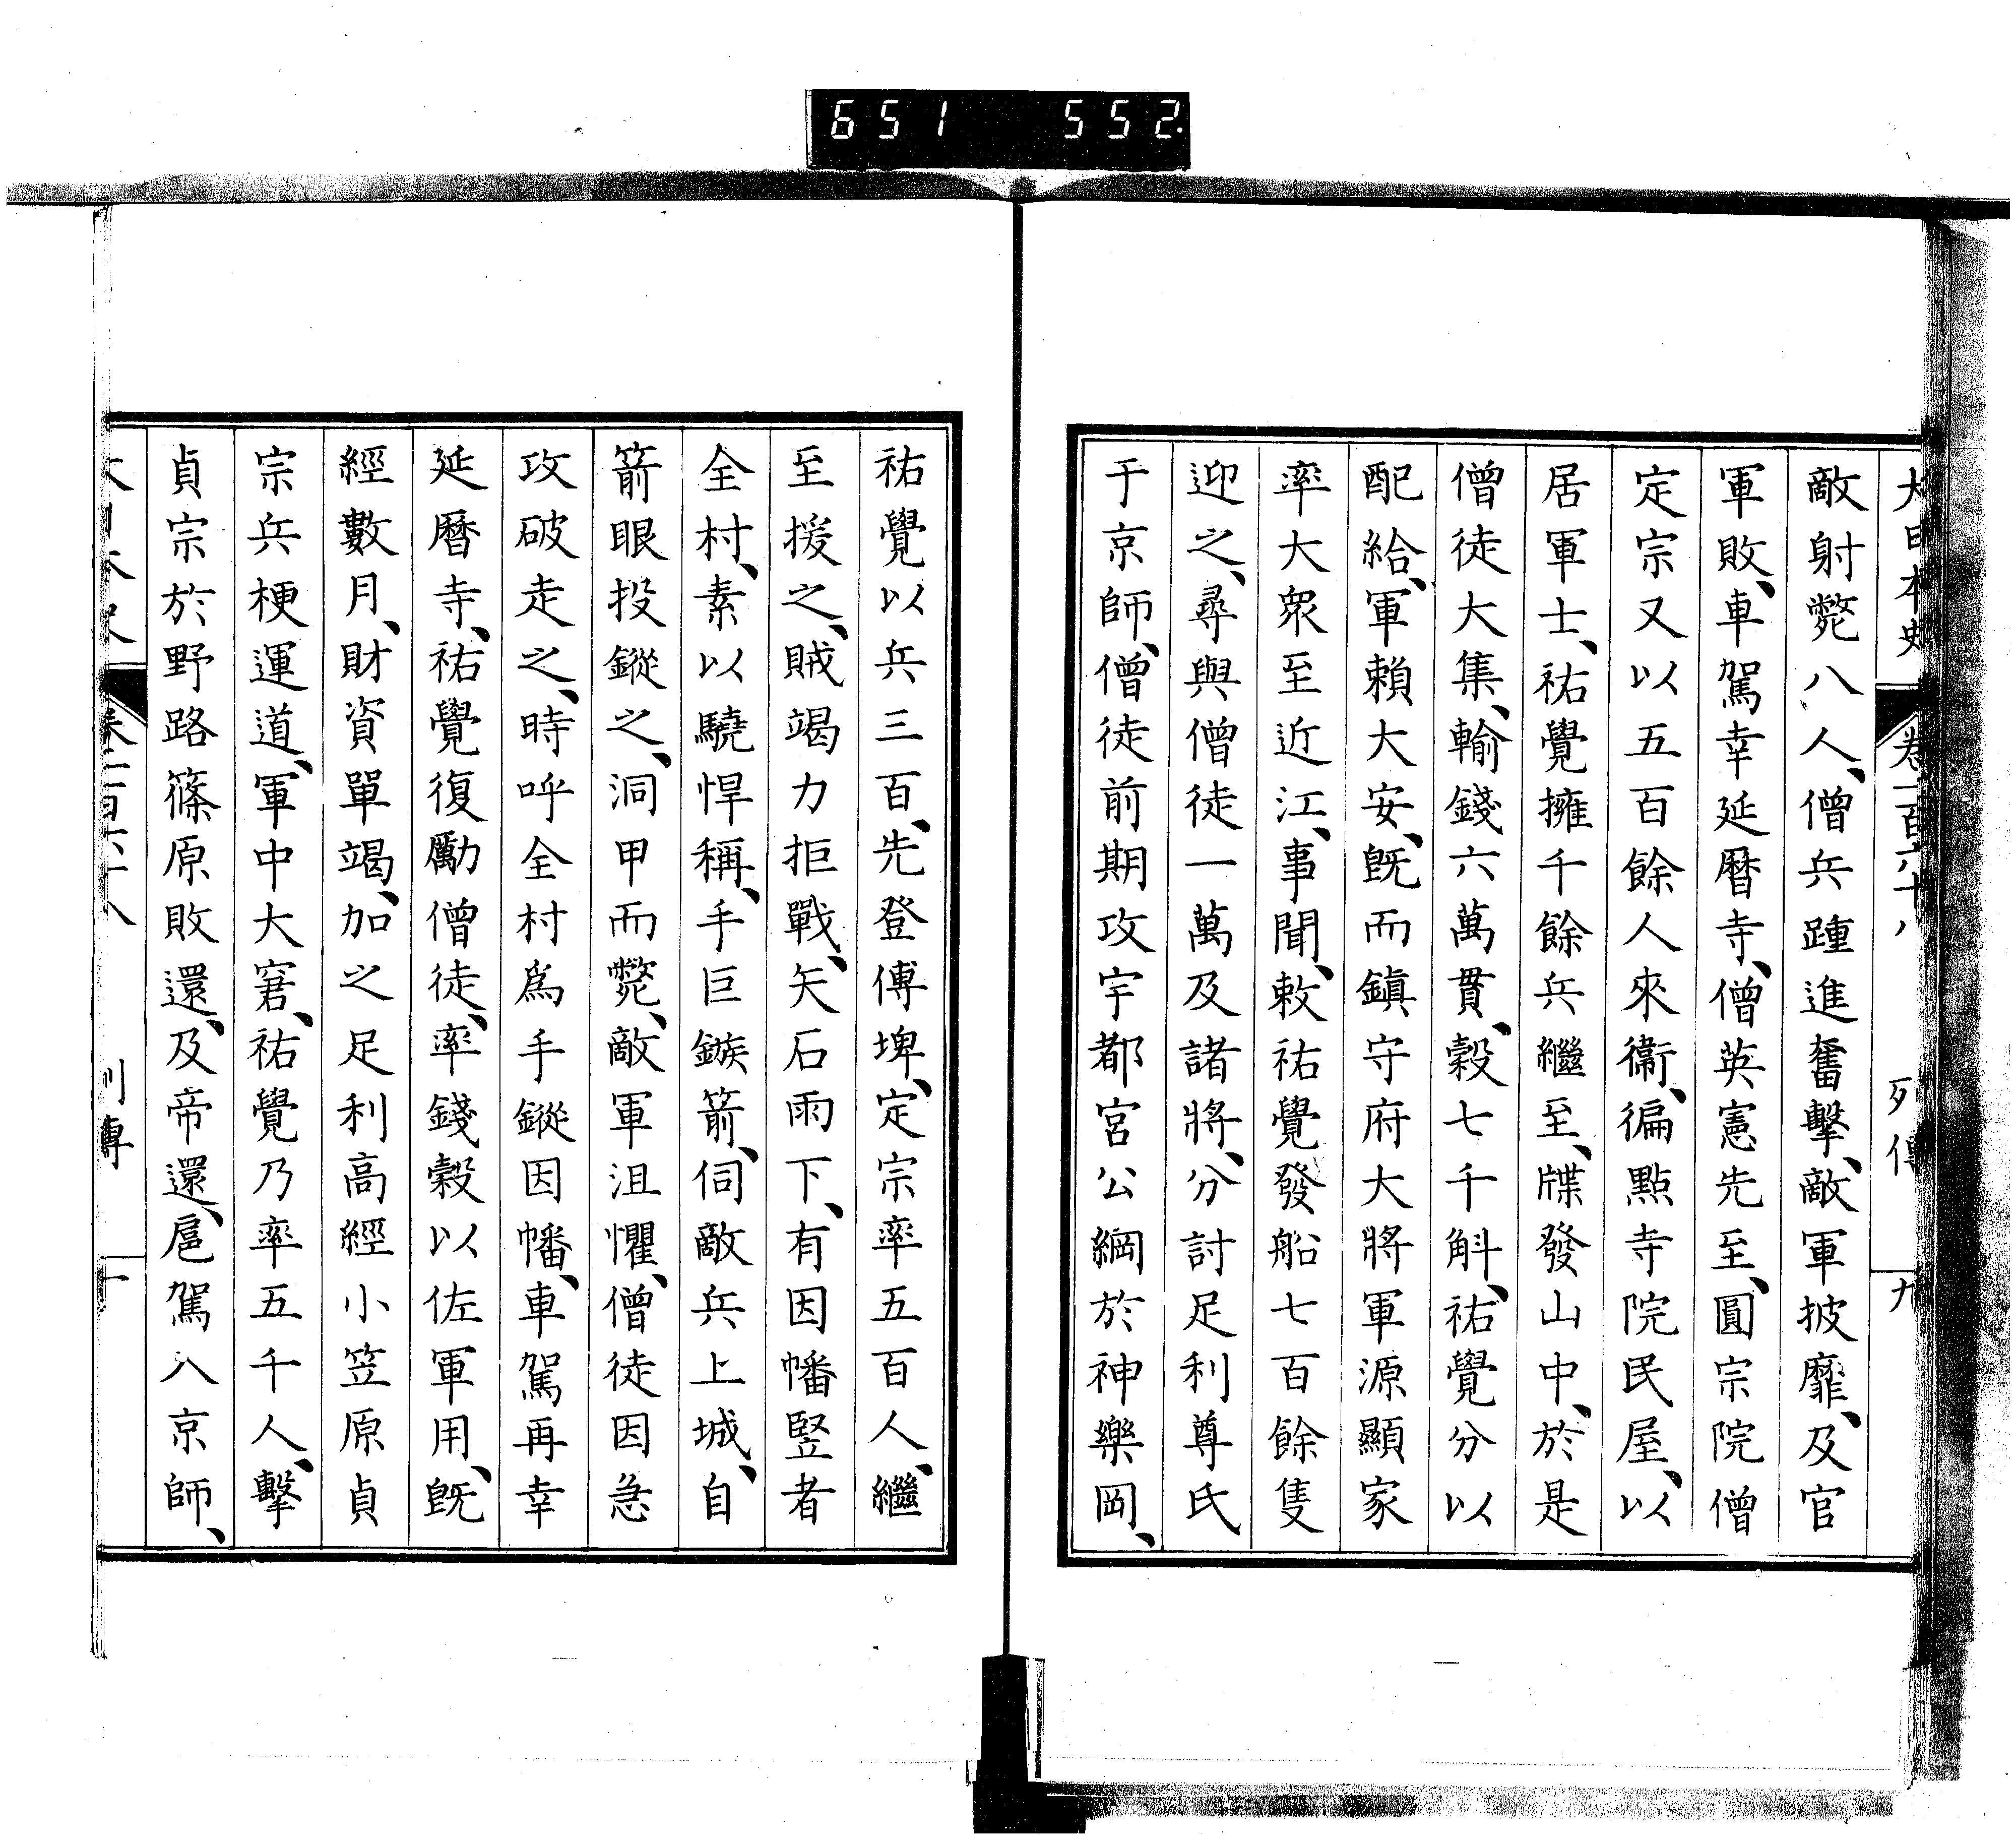 651 552.
大日本史 卷一百六十八 列傳 九
敵射斃八人、僧兵踵進奮擊、敵軍披靡、及官
軍敗、車駕幸延曆寺、僧英憲先至、圓宗院僧
定宗又以五百餘人來衞、徧點寺院民屋、以
居軍士、祐覺擁千餘兵繼至、牒發山中、於是
僧徒大集、輸錢六萬貫、穀七千斛、祐覺分以
配給、軍賴大安、旣而鎭守府大將軍源顯家
率大眾至近江、事聞、敕祐覺發船七百餘隻
迎之、尋與僧徒一萬及諸將、分討足利尊氏
于京師、僧徒前期攻宇都宮公綱於神樂岡、
祐覺以兵三百、先登傅埤、定宗率五百人、繼
至援之、賊竭力拒戰、矢石雨下、有因幡豎者
全村、素以驍悍稱、手巨鏃箭、伺敵兵上城、自
箭眼投鏦之、洞甲而斃、敵軍沮懼、僧徒因急
攻破走之、時呼全村爲手鏦因幡、車駕再幸
延曆寺、祐覺復勵僧徒、率錢穀以佐軍用、旣
經數月、財資單竭、加之足利高經小笠原貞
宗兵梗運道、軍中大窘、祐覺乃率五千人、擊
貞宗於野路篠原敗還、及帝還、扈駕入京師、
大日本史 卷一百六十八 列傳